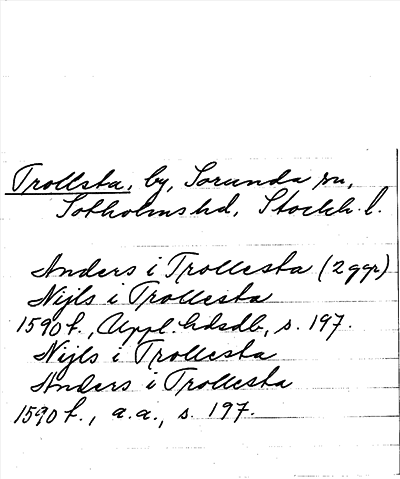 Trollsta, by, Sorunda sn,
Sotholms hd, Stockh. l.
Anders i Trollesta (2 ggr)
Nijls i Trollesta
1590 t., Uppl. hdsdb, s. 197.
Nijls i Trollesta
Anders i Trollesta
1590 t., a.a., s. 197.